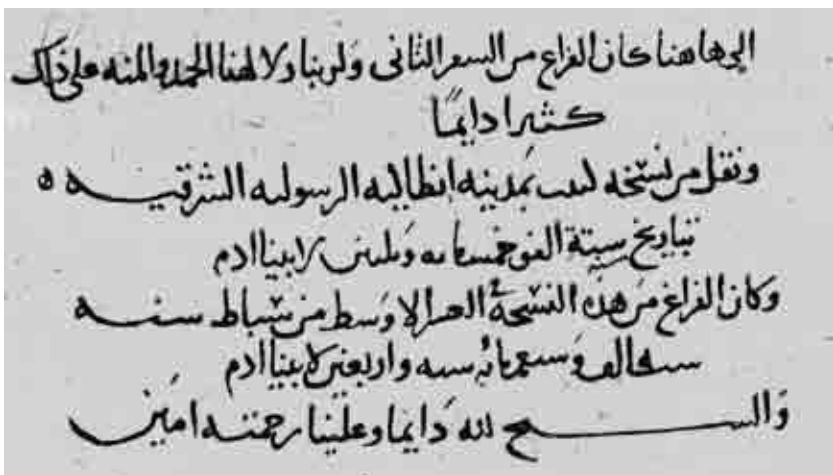 الى هاهنا كان الفراغ من السفر الثانى ولربنا ولالهنا الحمد والمنه على ذلك
كثيرا دايمًا
ونقل من نسخه كتبت بمدينه انطاكيه الرسوليه الشرقيـــه ه
بتاريخ ستة الف وخمسمايه وثلثين لابينا ادم
وكان الفراغ من هذه النسخة العشر الاوسط من شباط سنـــه
سته الف وسبعمائه سته واربعين لابينا ادم
والســـبح لله دايما وعلينا رحمتـه امين